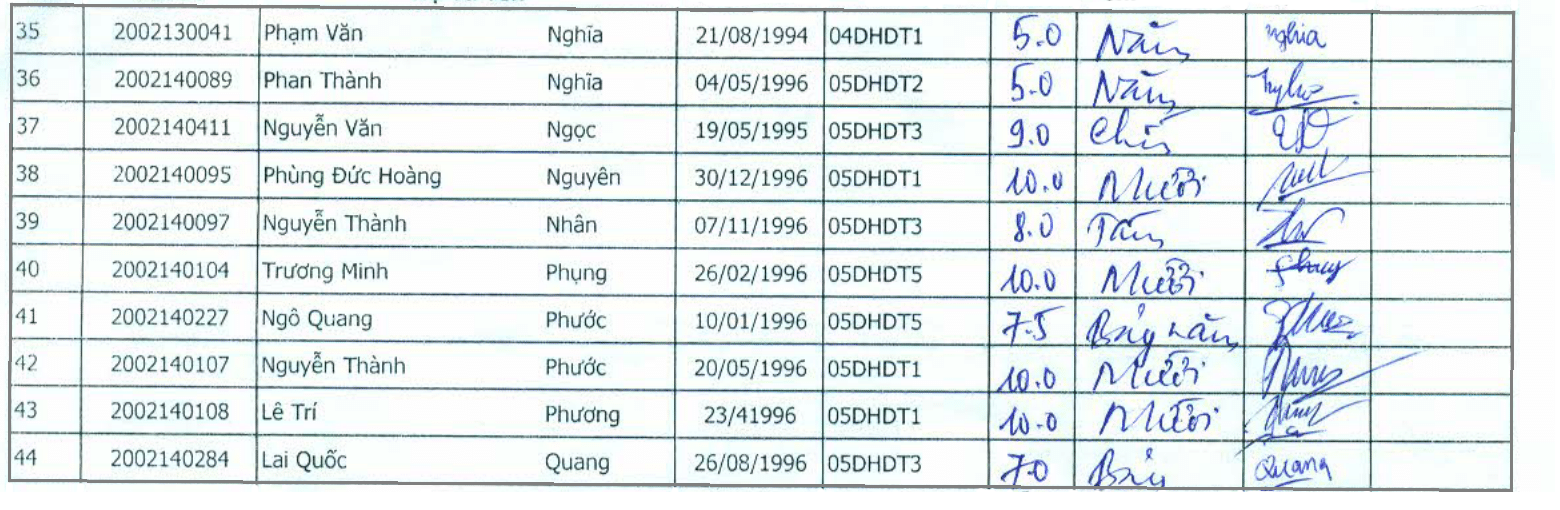 35 2002130041 Phạm Văn Nghĩa 21/08/1994 04DHDT1 5.0 Năm nghia
36 2002140089 Phan Thành Nghĩa 04/05/1996 05DHDT2 5.0 Năm
37 2002140411 Nguyễn Văn Ngọc 19/05/1995 05DHDT3 9.0 Chín
38 2002140095 Phùng Đức Hoàng Nguyên 30/12/1996 05DHDT1 10.0 Mười
39 2002140097 Nguyễn Thành Nhân 07/11/1996 05DHDT3 8.0 Tám
40 2002140104 Trương Minh Phụng 26/02/1996 05DHDT5 10.0 Mười
41 2002140227 Ngô Quang Phước 10/01/1996 05DHDT5 7.5 Bảy năm
42 2002140107 Nguyễn Thành Phước 20/05/1996 05DHDT1 10.0 Mười
43 2002140108 Lê Trí Phương 23/41996 05DHDT1 10.0 Mười
44 2002140284 Lai Quốc Quang 26/08/1996 05DHDT3 7.0 Bảy Quang